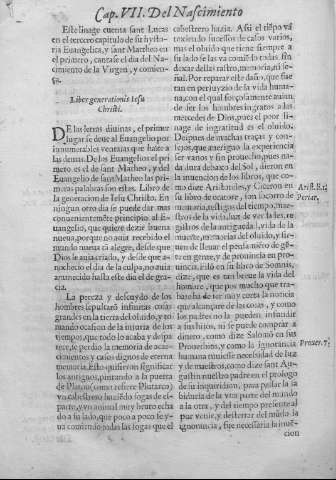 Cap. VII. Del Nascimiento
Este linage cuenta sant Lucas
en el tercero capitulo de su hysto-
ria Euangelica, y sant Mattheo en
el primero, cantase el dia del Na-
cimiento de la Virgen, y comien-
ça.
Liber generationis Iesu
Christi.
DE las letras diuinas, el primer
lugar se deue al Euangelio por
innumerables ventajas que haze a
las demas. De los Euangelios el pri
mero es el de sant Matheo, y del
Euangelio de sant Matheo las pri-
meras palabras son estas. Libro de
la generacion de Iesu Christo. En
ningun otro dia se puede dar mas
conuenientemente principio al E-
uangelio, que quiere dezir buena
nueua, porque no auia recebido el
mundo nueua tã alegre, desde que
Dios le auia criado, y desde que a-
nochecio el dia de la culpa, no auia
amanecido hasta este dia el de gra-
cia.
La pereza y descuydo de los
hombres sepultarõ infinitas cosas
grandes en la tierra del oluido, y to
mando ocasion de la injuria de los
tiempos, que todo lo acaba y despa-
rece, se perdio la memoria de acae-
cimientos y casos dignos de eterna
memoria. Esto quisieron significar
los antiguos, pintando a la puerta
de Pluton (como refiere Plutarco)
vn cabestrero haziẽdo sogas de es-
parto, y vn animal muy hruto echa
do a su lado, que poco a poco se y-
ua comiendo todas las sogas que el
cabestrero hazia. Assi el tiẽpo va
texiendo sucessos de casos varios,
mas el oluido que tiene siempre a
su lado se las va comiẽdo todas sin
dexar dellas rastro, memoria, ni se-
ñal. Por reparar este daño, que fue
tan en perjuyzio de la vida huma-
na, con el qual forçosamente auian
de ser los hombres ingratos a las
mercedes de Dios, pues el peor li-
nage de ingratitud es el oluido.
Despues de muchas traças y con-
sejos, que mostrò la experiencia
ser vanos y sin prouecho, pues na-
da dura debaxo del Sol, dieron en
la inuencion de los libros, que co-
mo dize Aristoteles, y Ciceron en
su libro de oratore, son socorro de
memoria, testigos del tiempo, mae-
stros de la vida, luz de verdades, re
gistros de la antiguedad, vida de la
muerte, memorias del oluido, y sir-
uen de lleuar el pensamiẽto de gẽ-
te en gente, y de prouincia en pro-
uincia. Filõ en su libro de Somnis,
dize, que es tan breue la vida del
hombre, que por mucho que tra-
baxe ha de ser muy corta la noticia
que alcançare de las cosas, y como
los padres no la pueden infundir
a sus hijos, ni se puede comprar a
dinero, como dize Salomõ en sus
Prouerbios, y como la ignorancia
humana tuuiesse necessidad de luz
y de maestros, como dize sant Au-
gustin nuestro padre en el prologo
de su inquiridion, para passar la sa
biduria de la vna parte del mundo
a la otra, y del tiempo presente al
por venir, y desterrar del mũdo la
ignorancia, fue necessaria la inuẽ-
cion
Arist. li. 1.
Periar.
Prouer. 7.